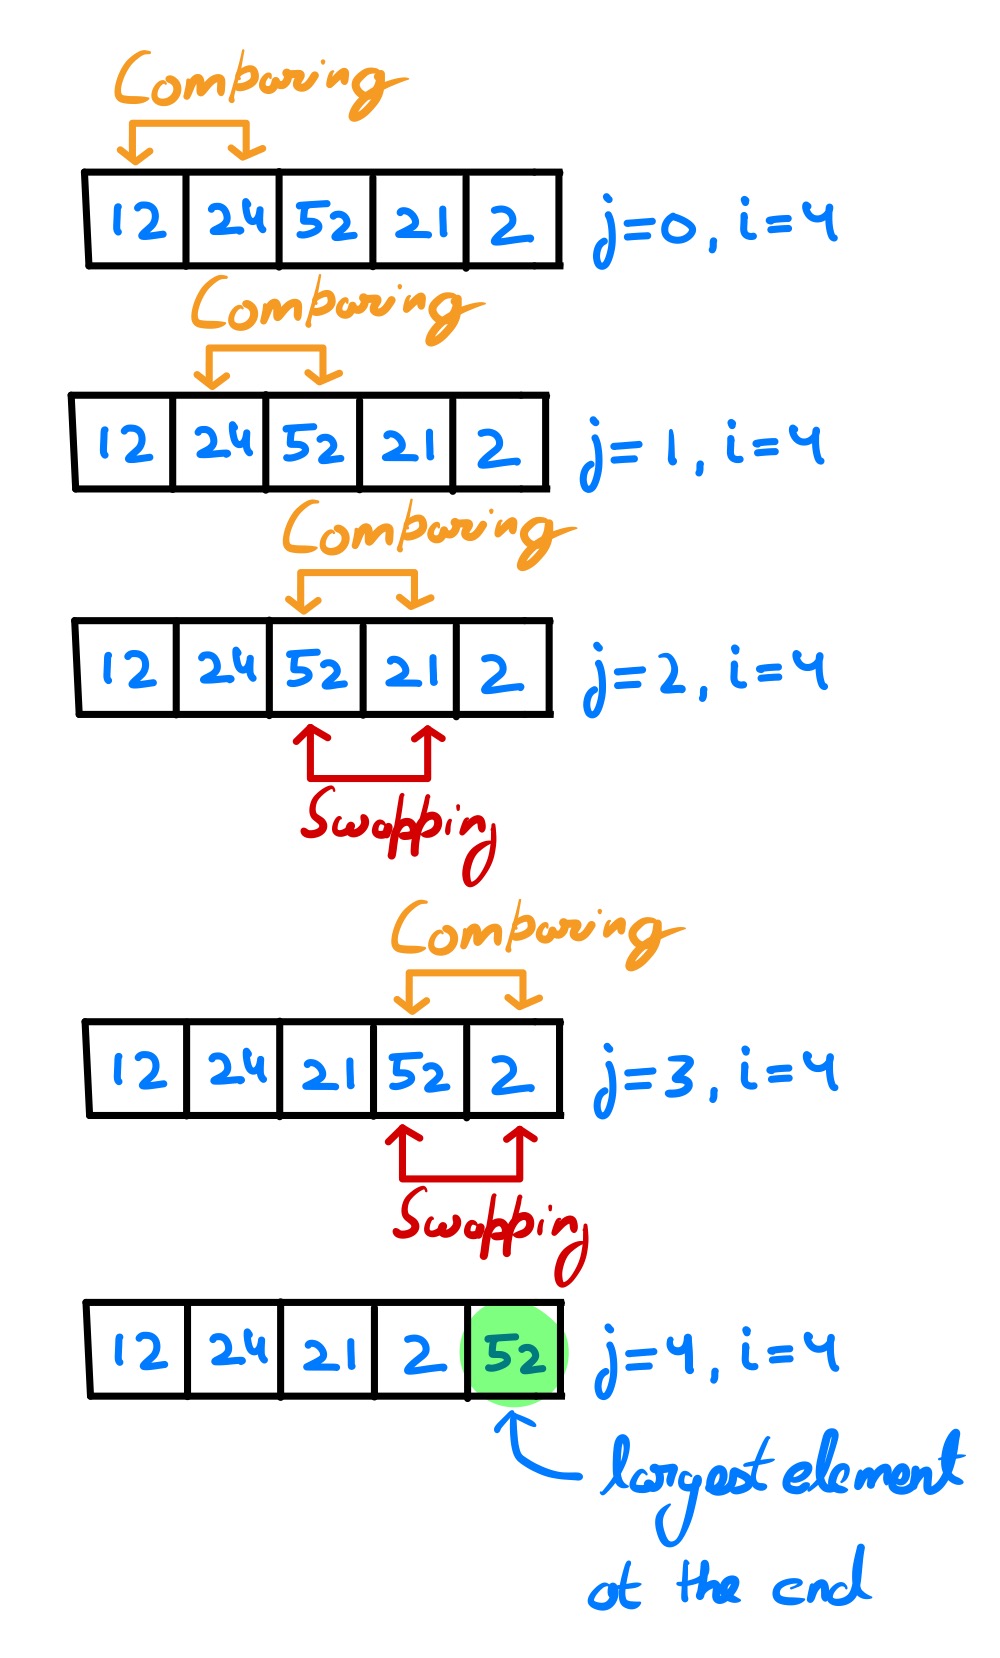 Comparing
12 24 52 21 2 j=0, i=4
Comparing
12 24 52 21 2 j=1, i=4
Comparing
12 24 52 21 2 j=2, i=4
Swapping
Comparing
12 24 21 52 2 j=3, i=4
Swapping
12 24 21 2 52 j=4, i=4
largest element
at the end